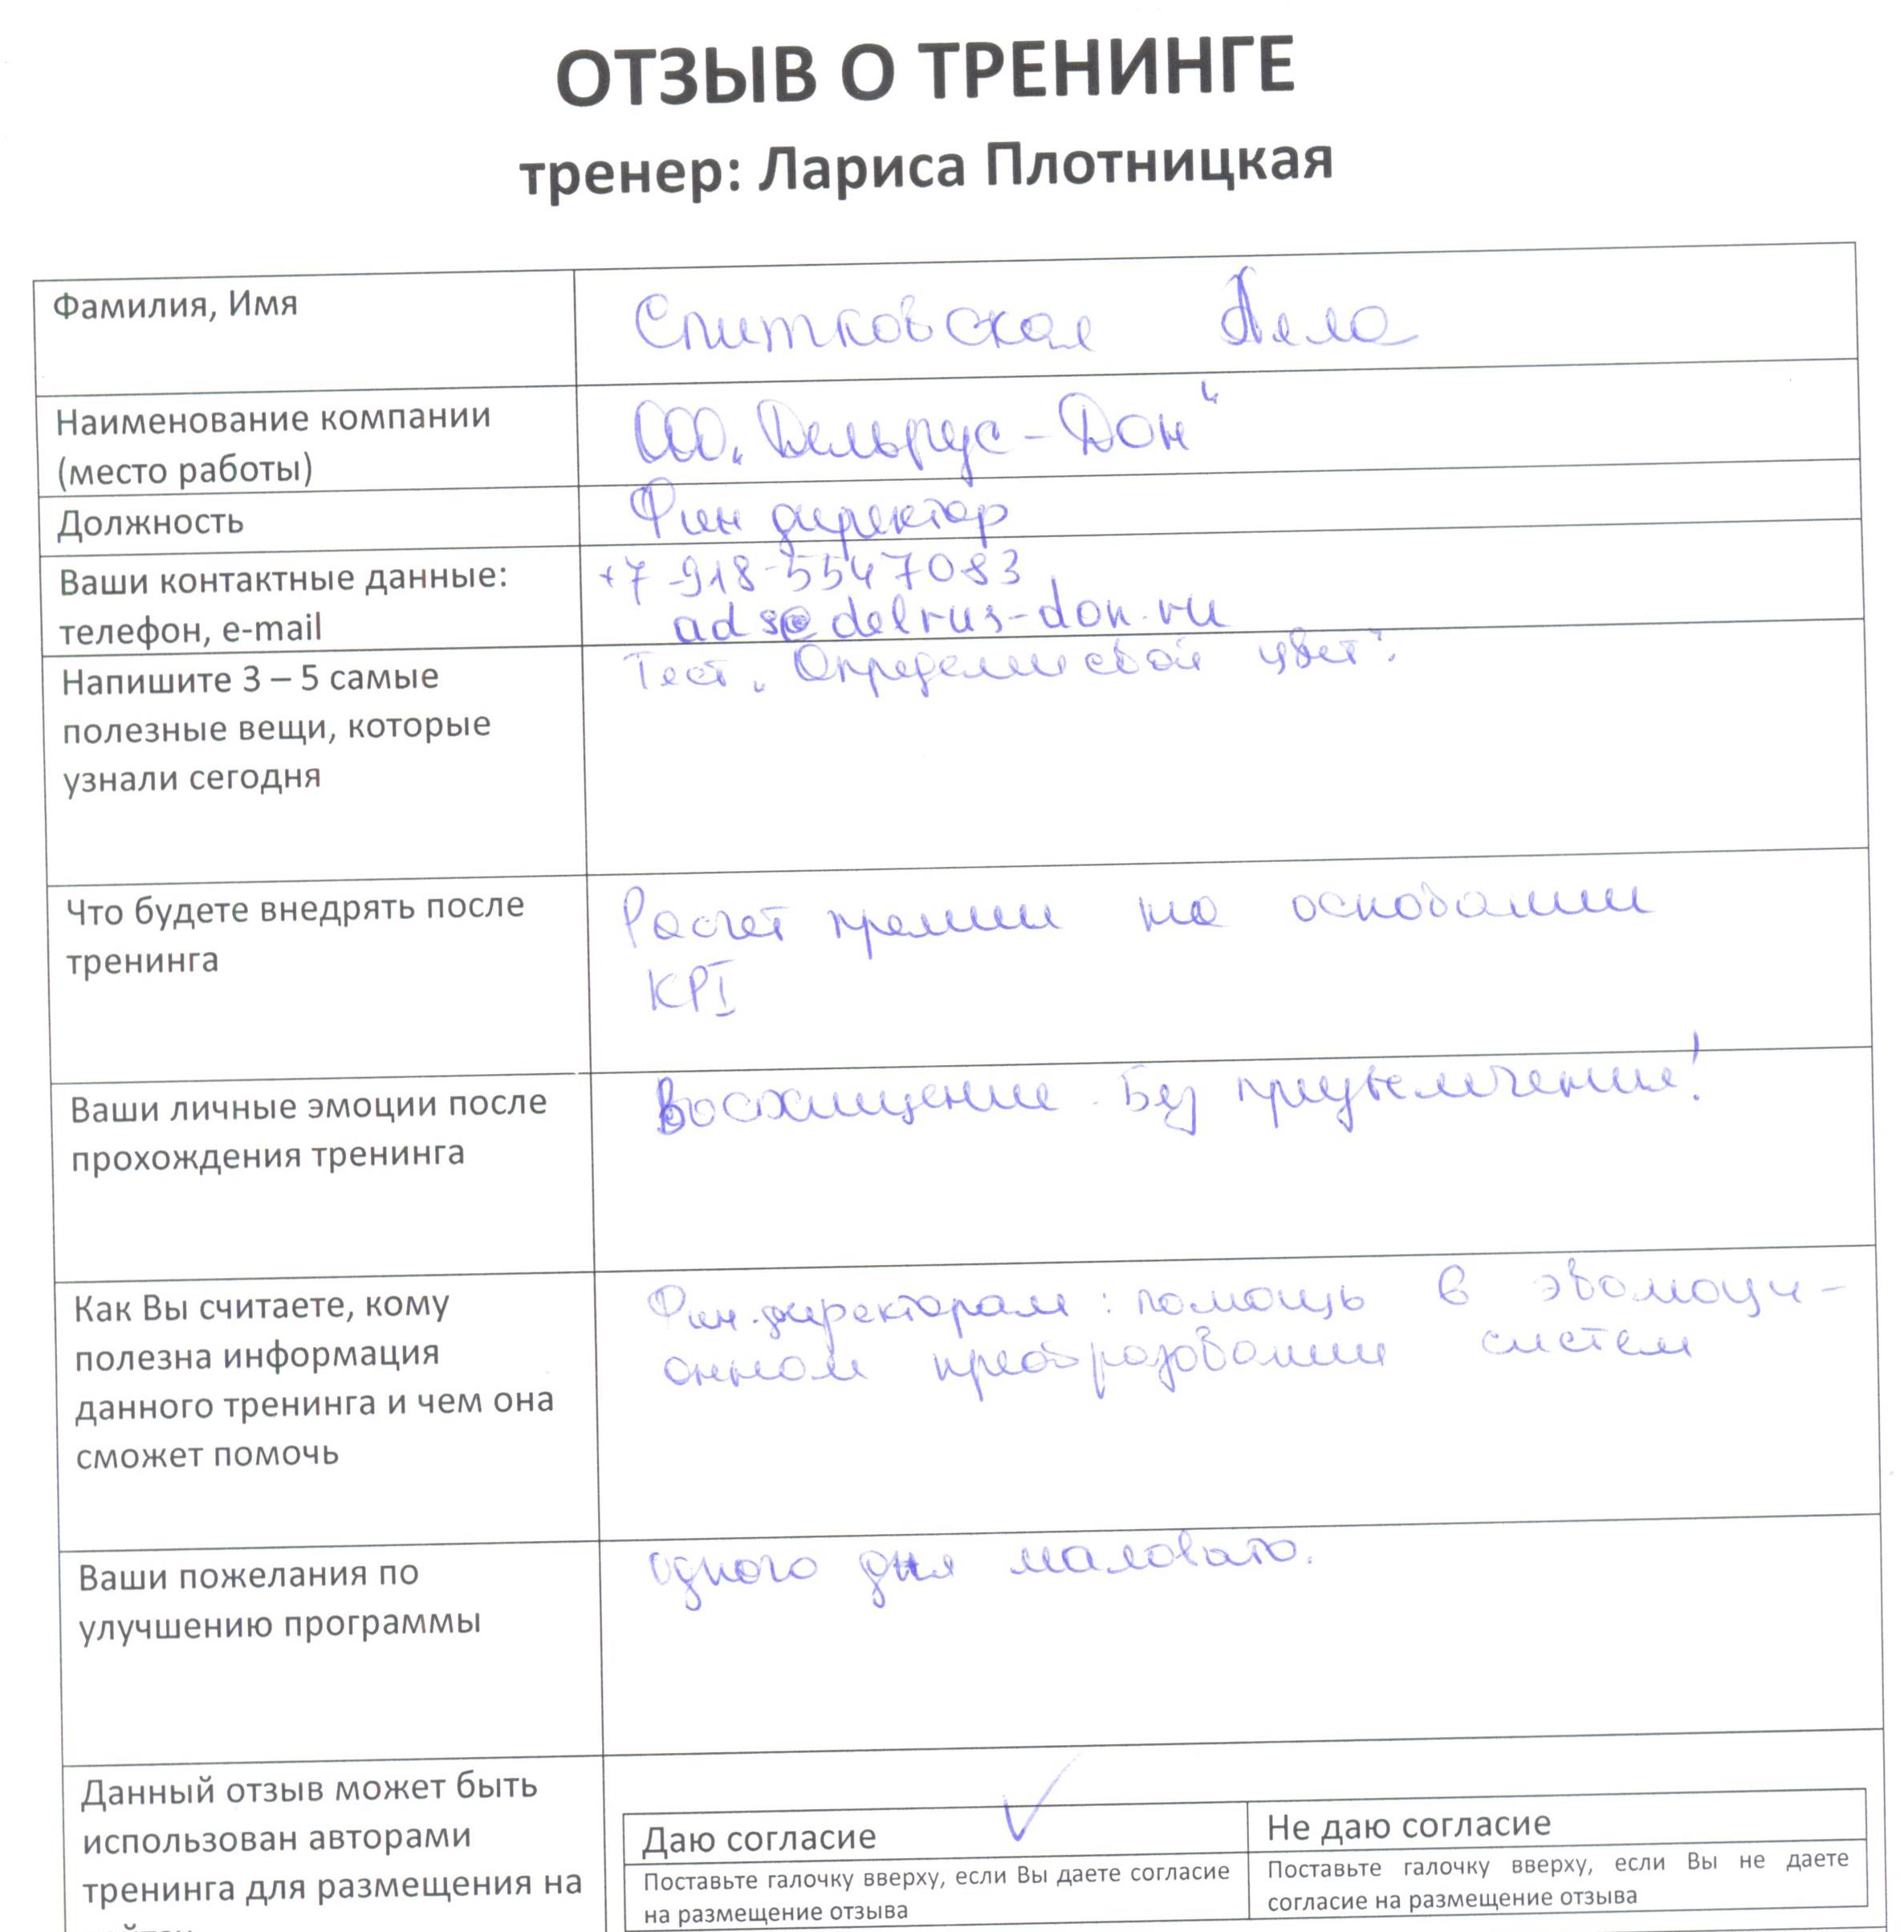 ОТЗЫВ О ТРЕНИНГЕ
тренер: Лариса Плотницкая
Фамилия, Имя
Спитковская Алла
Наименование компании
(место работы)
ООО „Дельрус-Дон“
Должность
Фин директор
Ваши контактные данные:
телефон, e-mail
+7-918-5547083
ads@delrus-don.ru
Напишите 3 – 5 самые
полезные вещи, которые
узнали сегодня
Тест „Определи свой цвет“.
Что будете внедрять после
тренинга
Расчет премии на основании
KPI
Ваши личные эмоции после
прохождения тренинга
Восхищение. Без преувеличения!
Как Вы считаете, кому
полезна информация
данного тренинга и чем она
сможет помочь
Фин.директорам: помощь в эволюци-
онном преобразовании систем
Ваши пожелания по
улучшению программы
Одного дня маловато.
Данный отзыв может быть
использован авторами
тренинга для размещения на
Даю согласие
Поставьте галочку вверху, если Вы даете согласие
на размещение отзыва
Не даю согласие
Поставьте галочку вверху, если Вы не даете
согласие на размещение отзыва